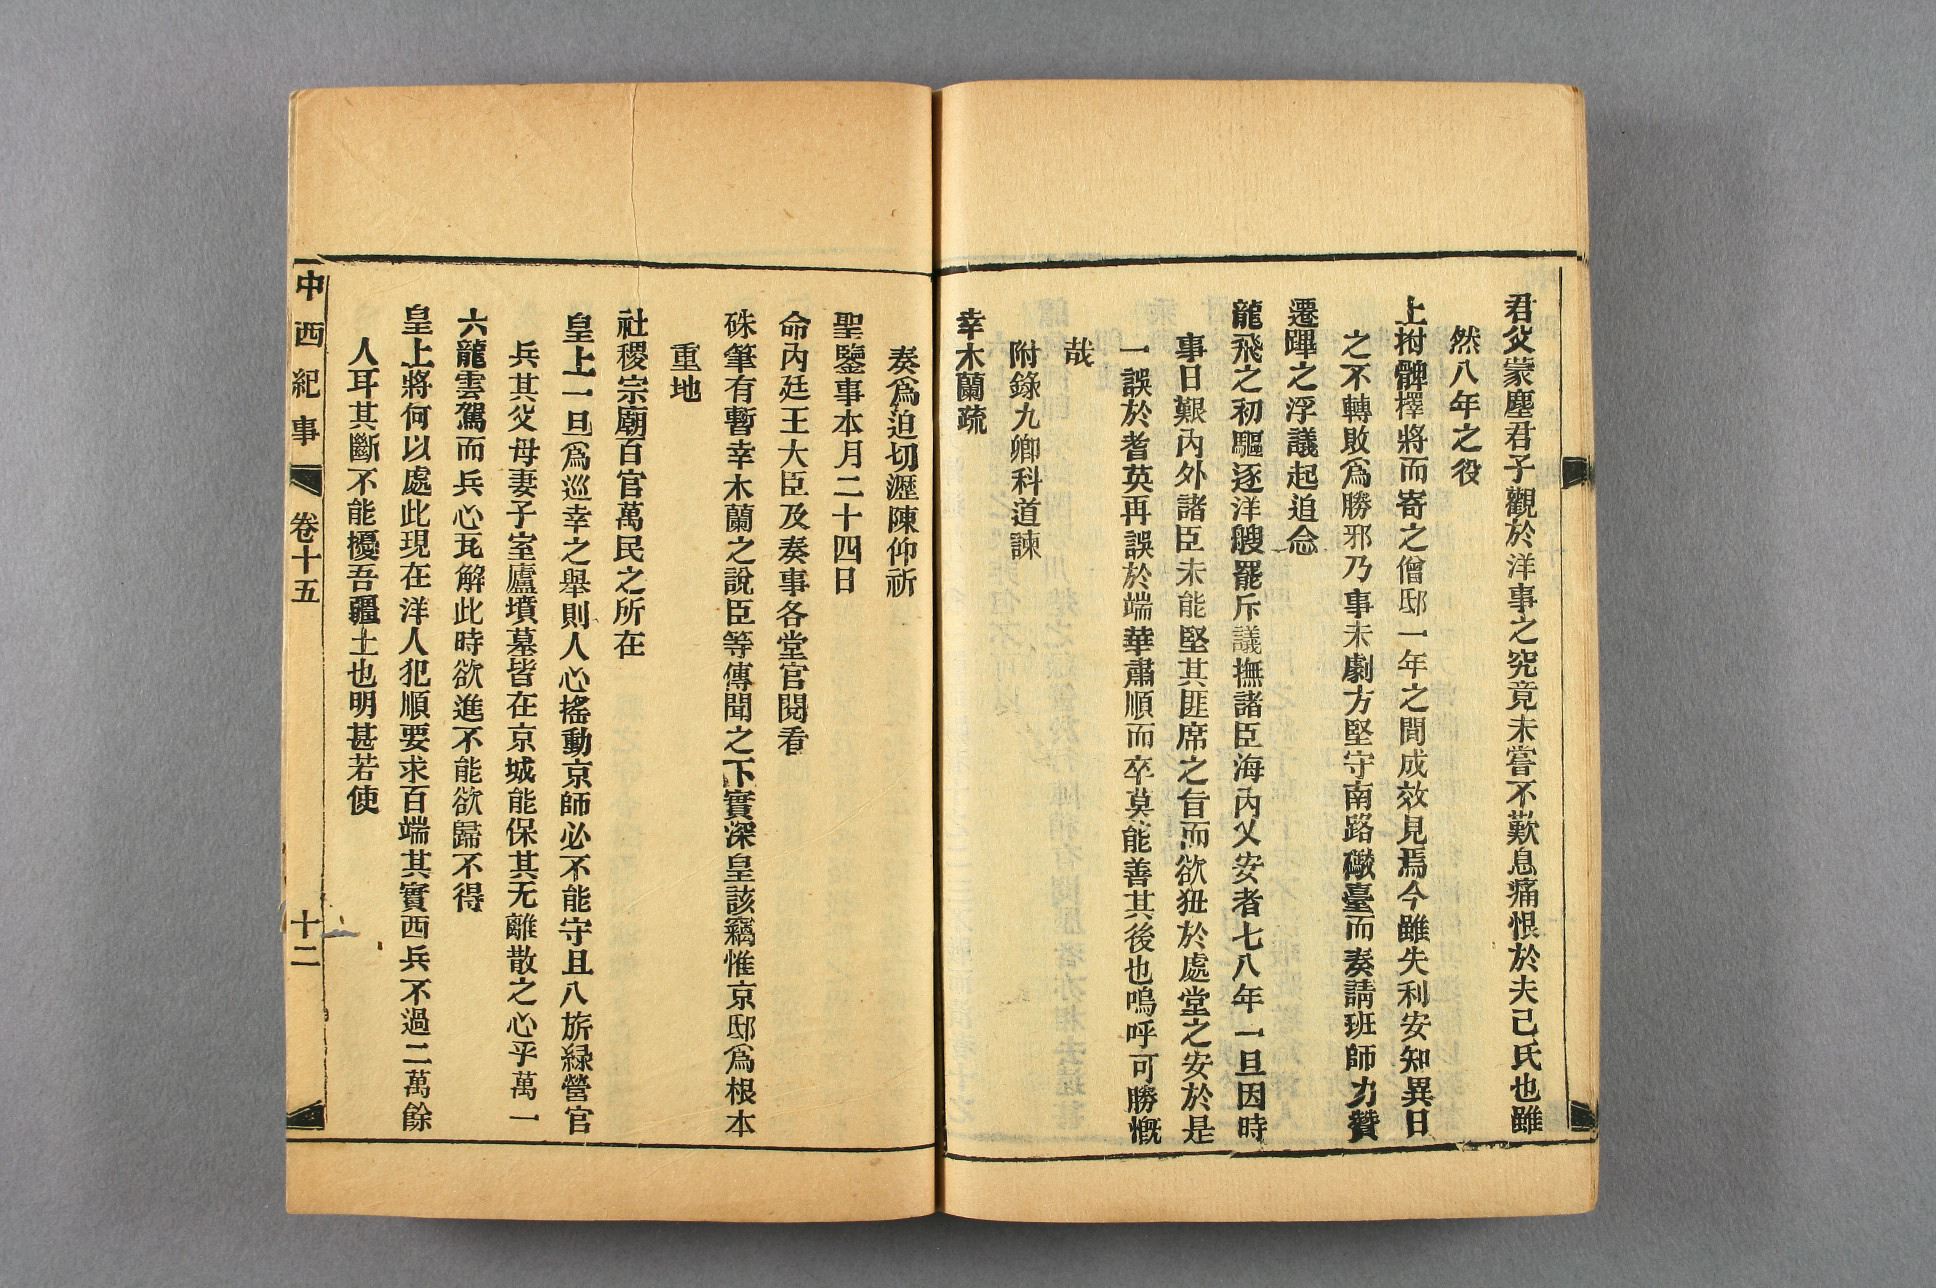 君父蒙塵君子觀於洋事之究竟未嘗不歎息痛恨於夫己氏也雖
然八年之役
上拊髀擇將而寄之僧邸一年之間成效見焉今雖失利安知異日
之不轉敗爲勝邪乃事未劇方堅守南路礮臺而奏請班師力贊
遷蹕之浮議起追念
龍飛之初驅逐洋艘罷斥議撫諸臣海內乂安者七八年一旦因時
事日艱內外諸臣未能堅其匪席之旨而欲狃於處堂之安於是
一誤於耆英再誤於端華肅順而卒莫能善其後也嗚呼可勝慨
哉
附錄九卿科道諫
幸木蘭疏
奏爲迫切瀝陳仰祈
聖鑒事本月二十四日
命內廷王大臣及奏事各堂官閱看
硃筆有暫幸木蘭之說臣等傳聞之下實深皇該竊惟京邸爲根本
重地
社稷宗廟百官萬民之所在
皇上一旦爲巡幸之舉則人心搖動京師必不能守且八旂綠營官
兵其父母妻子室廬墳墓皆在京城能保其无離散之心乎萬一
六龍雲駕而兵心瓦解此時欲進不能欲歸不得
皇上將何以處此現在洋人犯順要求百端其實西兵不過二萬餘
人耳其斷不能擾吾疆土也明甚若使
中西紀事 卷十五 十二